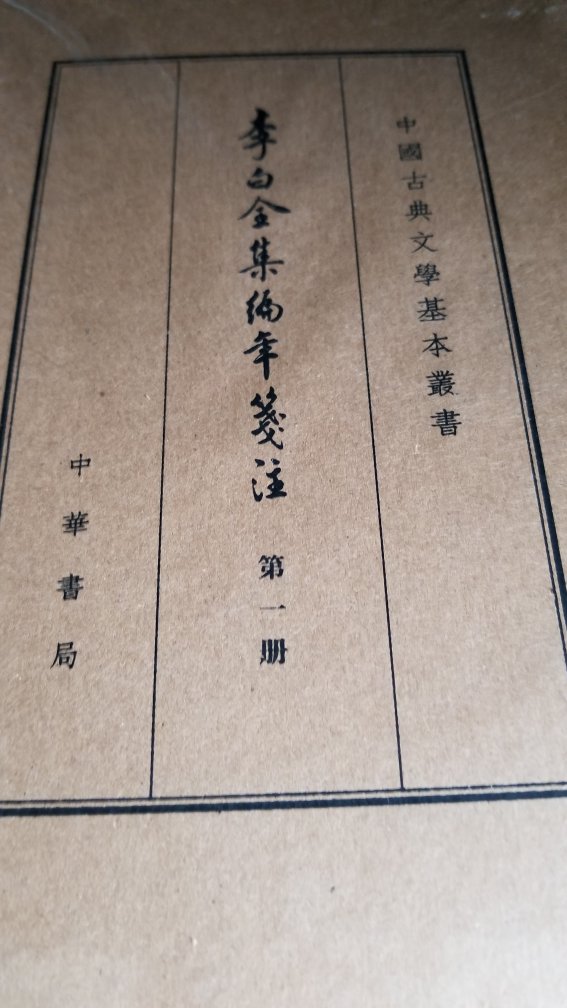 中國古典文學基本叢書
李白全集編年箋注 第一册
中華書局